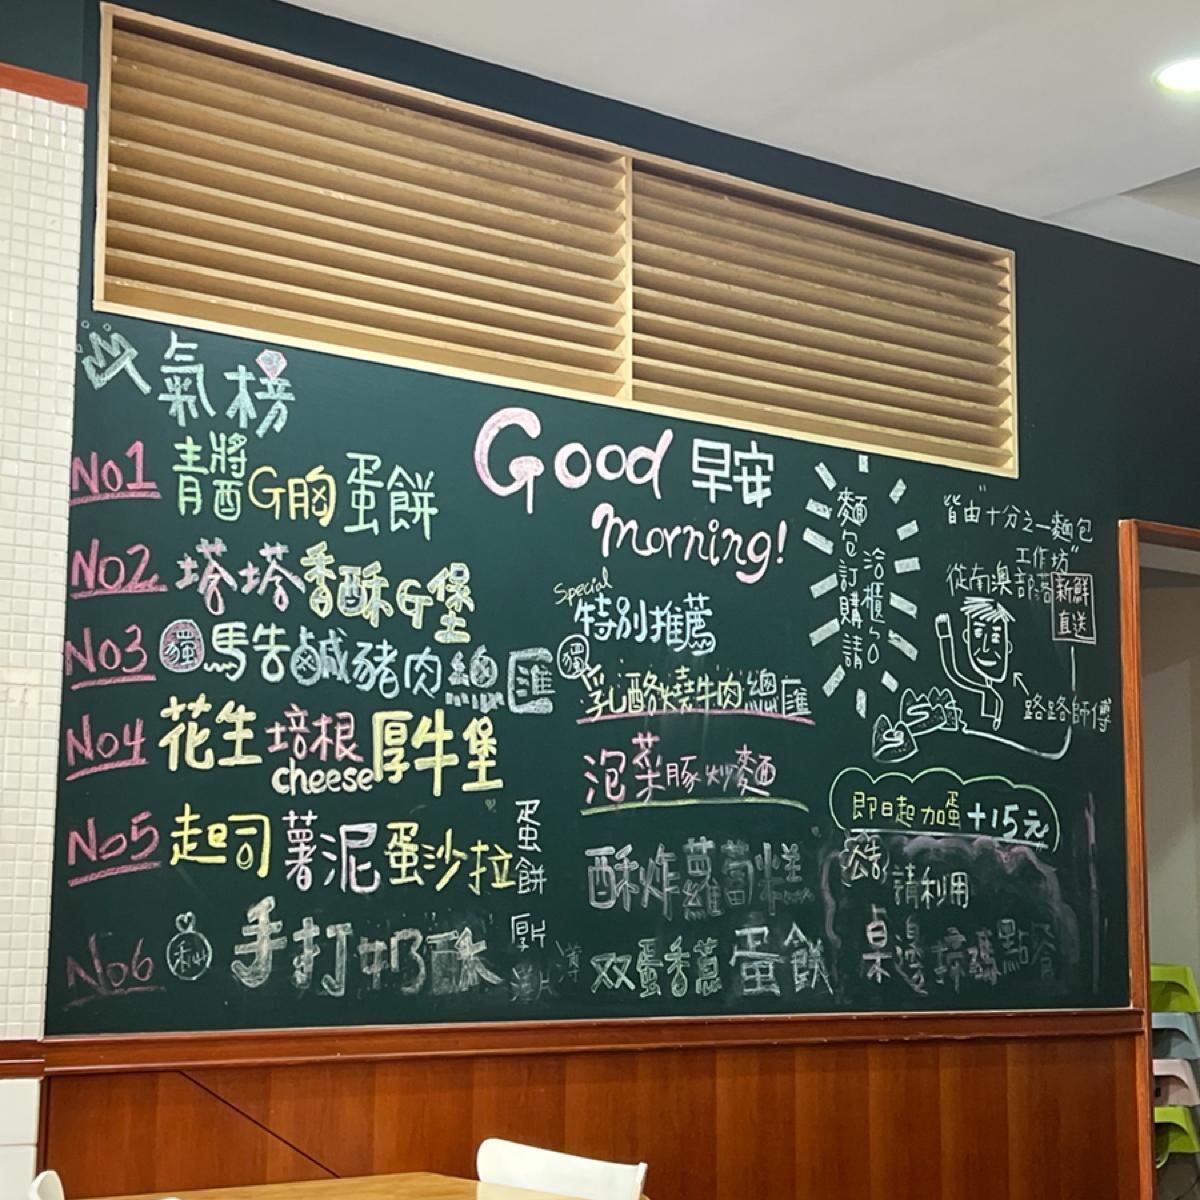 人氣榜
No1 青醬G胸蛋餅
No2 塔塔香酥G堡
No3 獨 馬告鹹豬肉總匯
No4 花生培根cheese厚牛堡
No5 起司薯泥蛋沙拉 蛋餅
No6 手打奶酥 厚片 薄片
Good 早安
morning!
Special
特別推薦
獨 乳酪燒牛肉總匯
泡菜豚炒麵
酥炸蘿蔔糕
双蛋香蔥蛋餅
麵包訂購請
洽櫃台
皆由"十分之一麵包
工作坊"
從南澳部落新鮮
直送
路路師傅
即日起加蛋+15元
公告
請利用
桌邊掃碼點餐